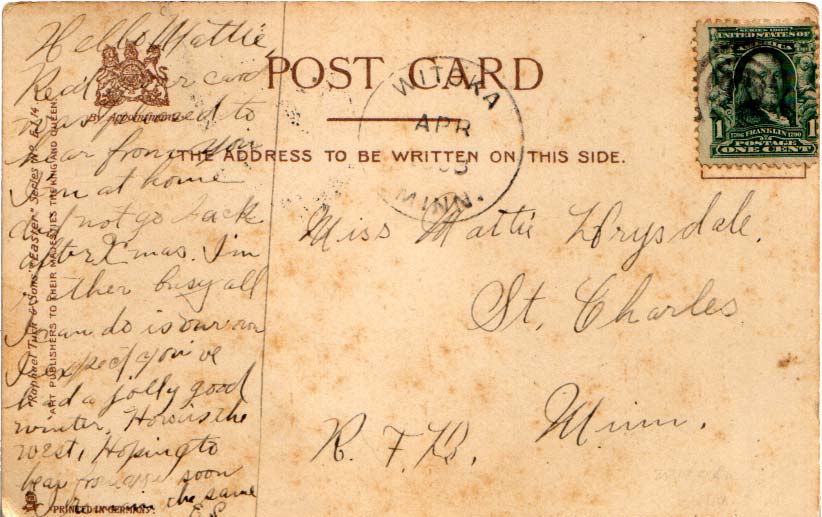 Hello Mattie,
Rec'd your card
was pleased to
hear from you
I'm at home
did not go back
after Xmas. I'm
rather busy all
I can do is our own
I expect you've
had a jolly good
winter. How is the
west, Hoping to
hear from you soon
the same
E.S.
By Appointment
"Raphael Tuck & Sons' "Easter" Series No.
"ART PUBLISHERS TO THEIR MAJESTIES THE KING AND QUEEN."
PRINTED IN GERMANY.
POST CARD
THE ADDRESS TO BE WRITTEN ON THIS SIDE.
WITOKA
APR
MINN.
SERIES 1902
UNITED STATES OF
AMERICA
1706 FRANKLIN 1790
1 1
POSTAGE
ONE CENT
Miss Mattie Drysdale.
St. Charles
Minn.
R. F. D.